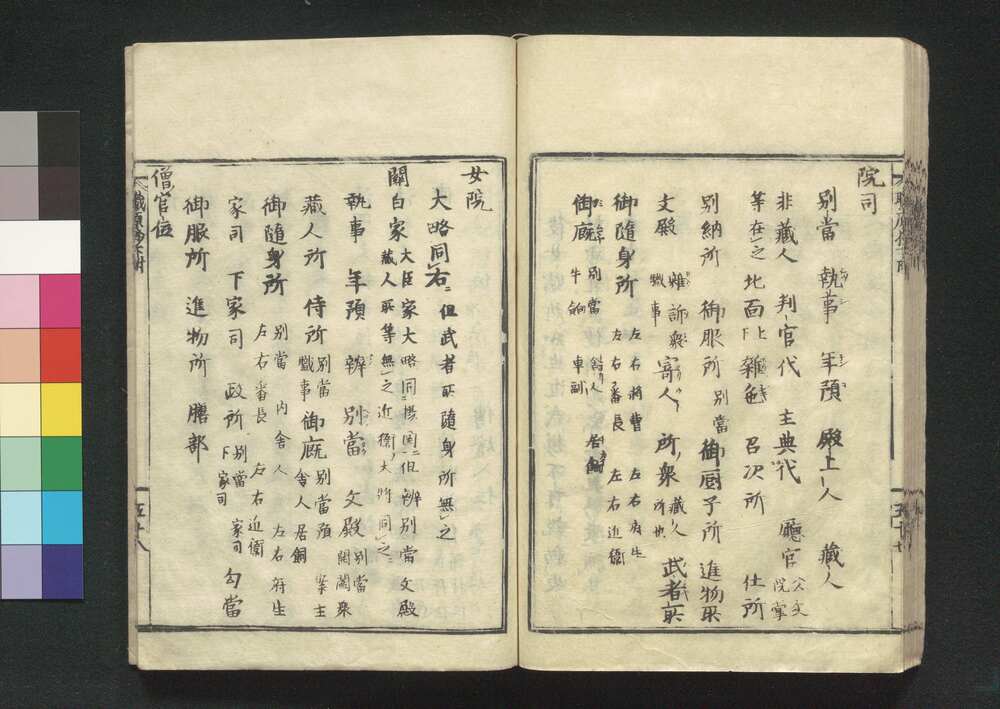 院司
別當 執事 年預 殿上人 藏人
非藏人 判官代 主典代 廳官 公文 院掌
等在之 北面 上下 雜色 召次所 仕所
別納所 御服所 別當 御厨子所 進物所
文殿 雜訴衆 職事 寄人 所衆 藏人所也 武者所
御隨身所 左右將曹 左右番長 左右府生 左右近衞
御廐 別當 舍人 居飼 牛飼 車副
女院
大略同右ニ但武者所隨身所無之
關白家 大臣家大略同ニ攝関ニ但辨別當文殿藏人所等無之近衞大將同之
執事 年預 辨 別當 文殿 別當 開闔衆
藏人所 侍所 別當 職事 御廐 別當預 案主 舍人居飼
御隨身所 別當 内舍人 左右府生 左右番長 左右近衞
家司 下家司 政所 別當 家司 下家司 勾當
御服所 進物所 膳部
僧官位
五十八